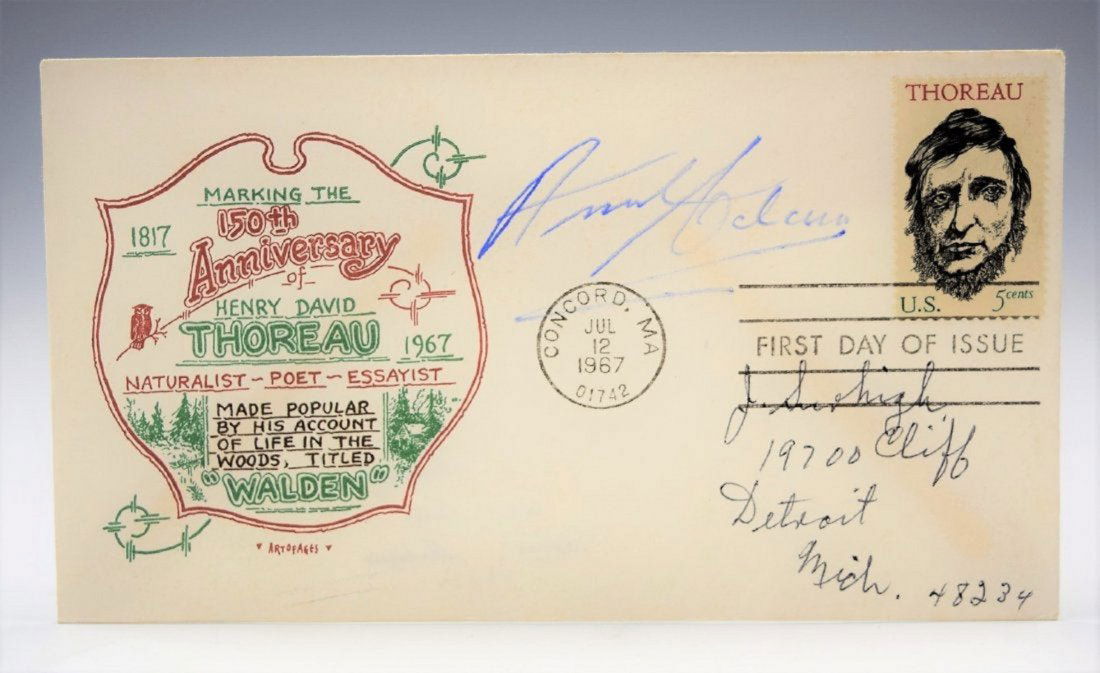 MARKING THE
150th
Anniversary
of
1817
HENRY DAVID
THOREAU
1967
NATURALIST ~ POET ~ ESSAYIST
MADE POPULAR
BY HIS ACCOUNT
OF LIFE IN THE
WOODS, TITLED
"WALDEN"
ARTOFAGES
Ansel Adams
CONCORD, MA
JUL
12
1967
01742
THOREAU
U.S. 5 cents
FIRST DAY OF ISSUE
J.
19700 Cliff
Detroit
Mich. 48234